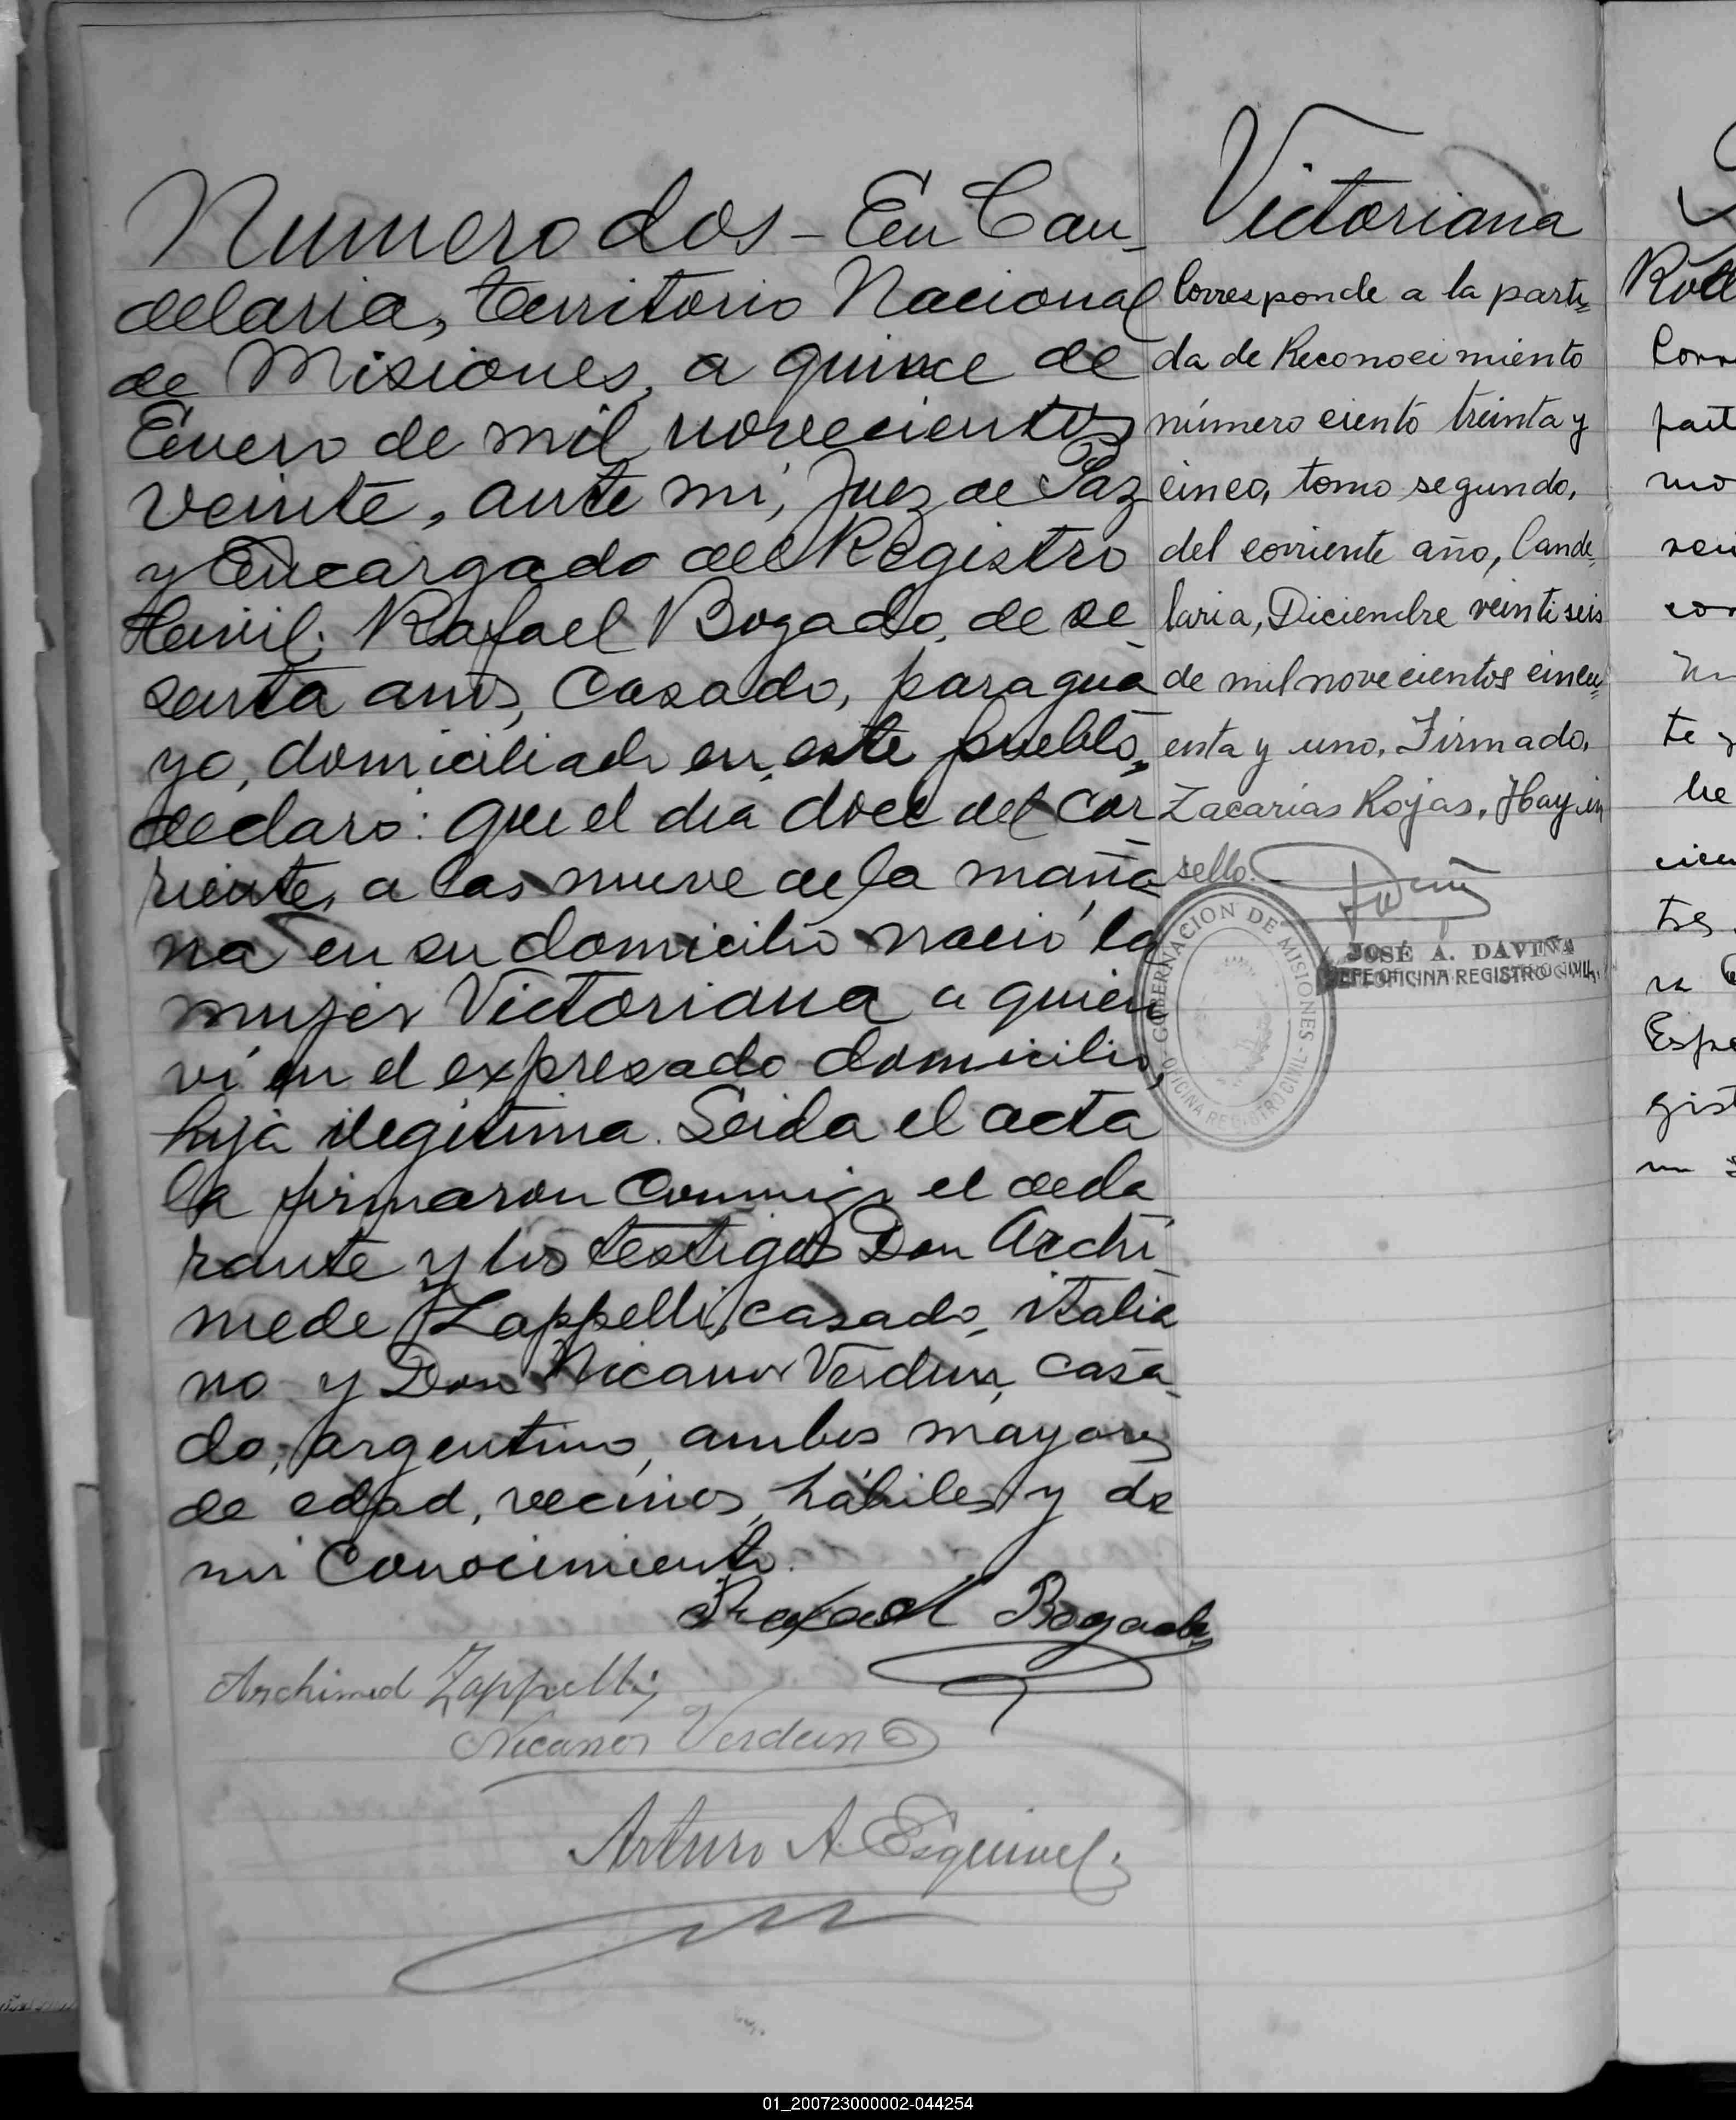 Numero dos - En Can-
delaria, territorio Nacional
de Misiones, a quince de
Enero de mil novecientos
veinte, ante mi, Juez de Paz
y Encargado del Registro
Civil: Rafael Bogado, de se
senta años, casado, paragua
yo, domiciliado en este pueblo,
declaró: que el dia doce del cor
riente, a las nueve de la maña
na en su domicilio nació la
mujer Victoriana a quien
ví en el expresado domicilio,
hija ilegitima. Leida el acta
la firmaron conmigo el decla
rante y los testigos Don Archi
mede Zappelli, casado, italia
no y Don Nicanor Verdun, casa
do, argentino, ambos mayores
de edad, vecinos, hábiles y de
mi conocimiento.
Rafael Bogado
Archimed Zappelli
Nicanor Verdun
Arturo A. Esquivel
Victoriana
Corresponde a la parti-
da de Reconocimiento
número ciento treinta y
cinco, tomo segundo,
del corriente año, Cande-
laria, Diciembre veintiseis
de mil novecientos cincu-
enta y uno, Firmado,
Zacarias Rojas, Hay un
sello.
GOBERNACION DE MISIONES
OFICINA REGISTRO CIVIL
JOSÉ A. DAVIÑA
JEFE OFICINA REGISTRO CIVIL
Corr
part
mo
te y
tres
Espe
gist
01_200723000002-044254